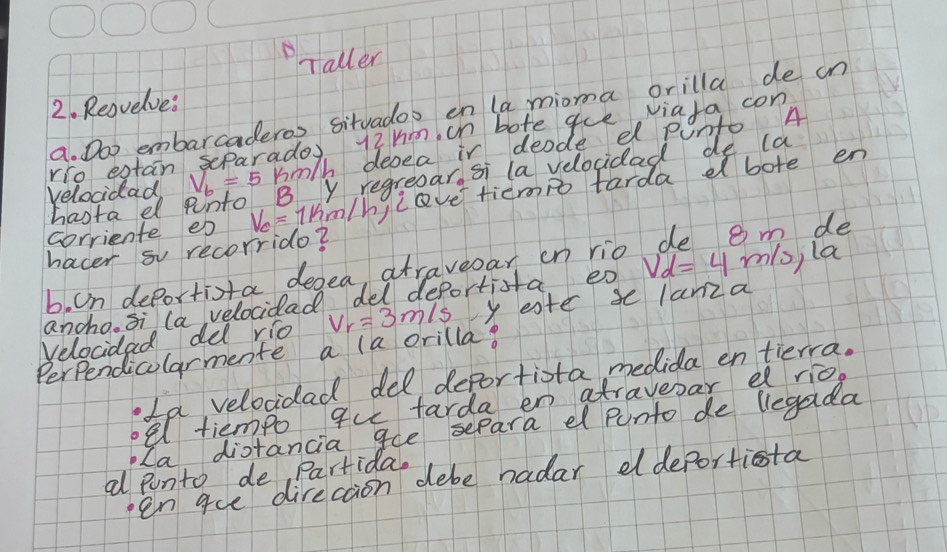 Taller
2. Resuelve:
a. Dos embarcaderos situados en la misma orilla de un
río están separados 12 km. Un bote que viaja con
velocidad Vb = 5 km/h desea ir desde el punto A
hasta el punto B y regresar. Si la velocidad de la
corriente es Vc = 1 km/h, ¿Qué tiempo tarda el bote en
hacer su recorrido?
b. Un deportista desea atravesar un río de 8 m de
ancho. Si la velocidad del deportista es Vd = 4 m/s, la
velocidad del río Vr = 3 m/s y este se lanza
Perpendicularmente a la orilla:
• La velocidad del deportista medida en tierra.
• El tiempo que tarda en atravesar el río.
• La distancia que separa el Punto de llegada
al Punto de Partida.
• En que dirección debe nadar el deportista